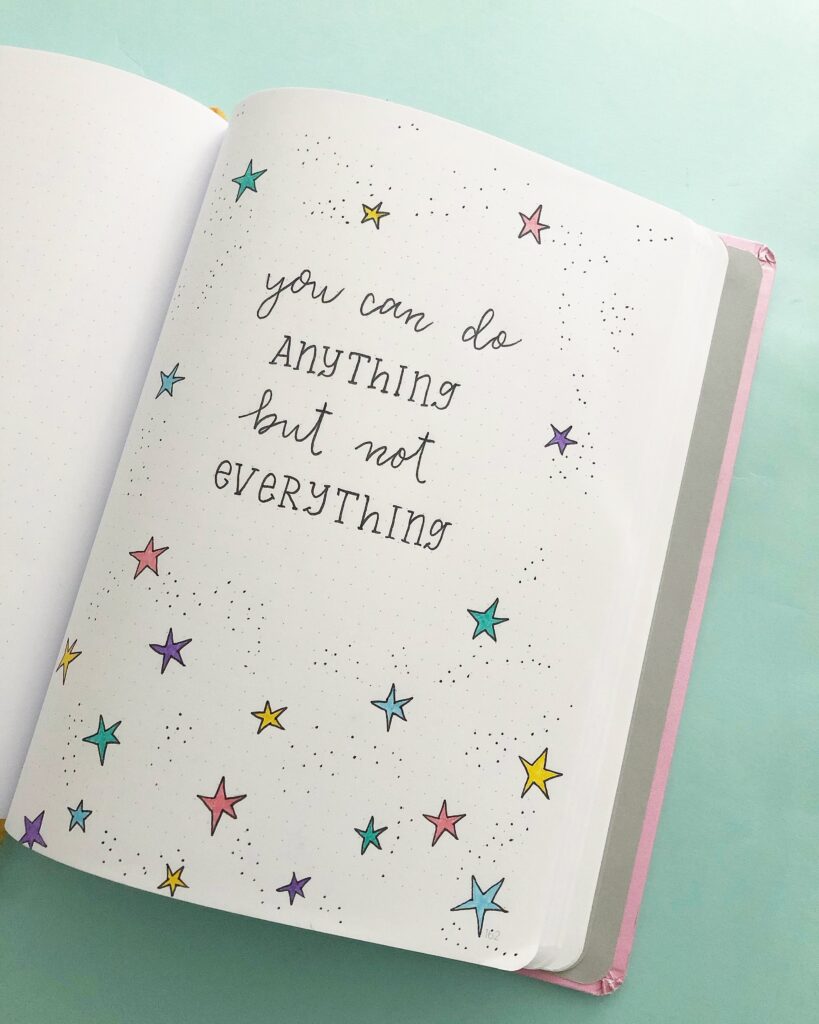 you can do
ANYThING
but not
EVERYThING
162